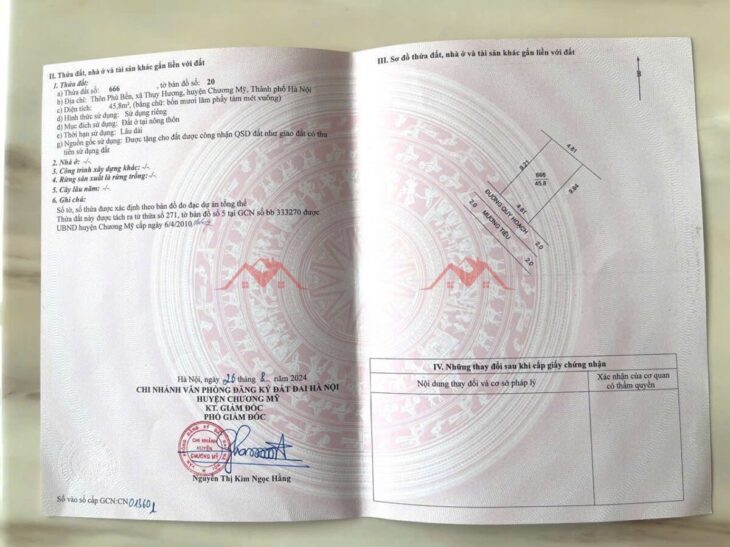 II. Thửa đất, nhà ở và tài sản khác gắn liền với đất
1. Thửa đất:
a) Thửa đất số: 666 , tờ bản đồ số: 20
b) Địa chỉ: Thôn Phú Bến, xã Thụy Hương, huyện Chương Mỹ, Thành phố Hà Nội
c) Diện tích: 45,8m², (bằng chữ: bốn mươi lăm phẩy tám mét vuông)
d) Hình thức sử dụng: Sử dụng riêng
đ) Mục đích sử dụng: Đất ở tại nông thôn
e) Thời hạn sử dụng: Lâu dài
g) Nguồn gốc sử dụng: Được tặng cho đất được công nhận QSD đất như giao đất có thu
tiền sử dụng đất
2. Nhà ở: -/-.
3. Công trình xây dựng khác: -/-.
4. Rừng sản xuất là rừng trồng: -/-.
5. Cây lâu năm: -/-.
6. Ghi chú:
Số tờ, số thửa được xác định theo bản đồ đo đạc dự án tổng thể
Thửa đất này được tách ra từ thửa số 271, tờ bản đồ số 5 tại GCN số bb 333270 được
UBND huyện Chương Mỹ cấp ngày 6/4/2010
Hà Nội, ngày 26 tháng 8 năm 2024
CHI NHÁNH VĂN PHÒNG ĐĂNG KÝ ĐẤT ĐAI HÀ NỘI
HUYỆN CHƯƠNG MỸ
KT. GIÁM ĐỐC
PHÓ GIÁM ĐỐC
CHI NHÁNH
HUYỆN
CHƯƠNG MỸ
Nguyễn Thị Kim Ngọc Hằng
Số vào sổ cấp GCN:CN 013601
III. Sơ đồ thửa đất, nhà ở và tài sản khác gắn liền với đất
B
4.81
9.21
666
45.8
9.84
4.81
ĐƯỜNG QUY HOẠCH
2.0
2.0
MƯƠNG TIÊU
2.0
IV. Những thay đổi sau khi cấp giấy chứng nhận
Nội dung thay đổi và cơ sở pháp lý
Xác nhận của cơ quan
có thẩm quyền